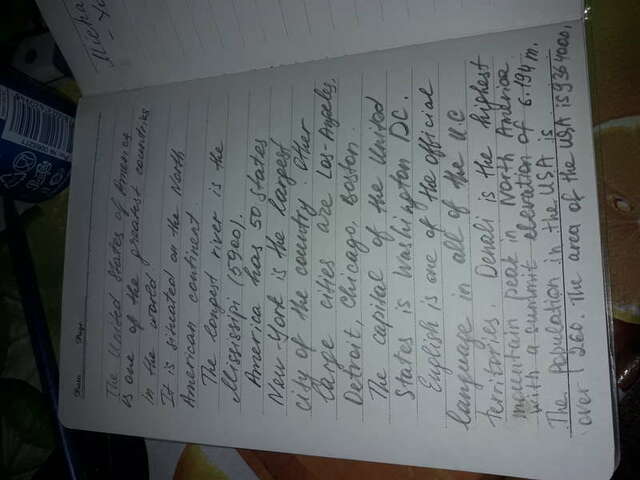 Date Page
The United States of America
is one of the greatest countries
in the world
It is situated on the North
American continent.
The longest river is the
Mississipi (5900).
America has 50 states
New-York is the largest
city of the country. Other
large cities are Los-Angeles,
Detroit, Chicago, Boston.
The capital of the United
States is Washington DC.
English is one of the official
language in all of the U.C
territories. Denali is the highest
mountain peak in North America
with a summit elevation of 6.194 m.
The population in the USA is
over 260. The area of the USA is 9364000.
Micha
- Yo